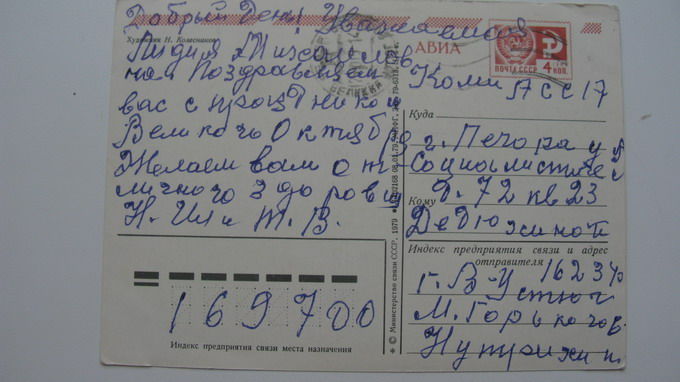 Добрый День! Уважаемая
Художник Н. Колесников
Лидия Михайлов
на Поздравляем
вас с празтником
Великого Октября
Желаем вам от
личного здоровия
Н. И. и Т. В.
АВИА
ПОЧТА СССР
4 коп.
Коми АССР
Куда
г. Печора ул
Социалистиче
д. 72 кв 23
Кому
Дедюхиной
Индекс предприятия связи и адрес
отправителя
1623
г. В-Устюг
М. Горького
169700
Индекс предприятия связи места назначения
© Министерство связи СССР, 1979